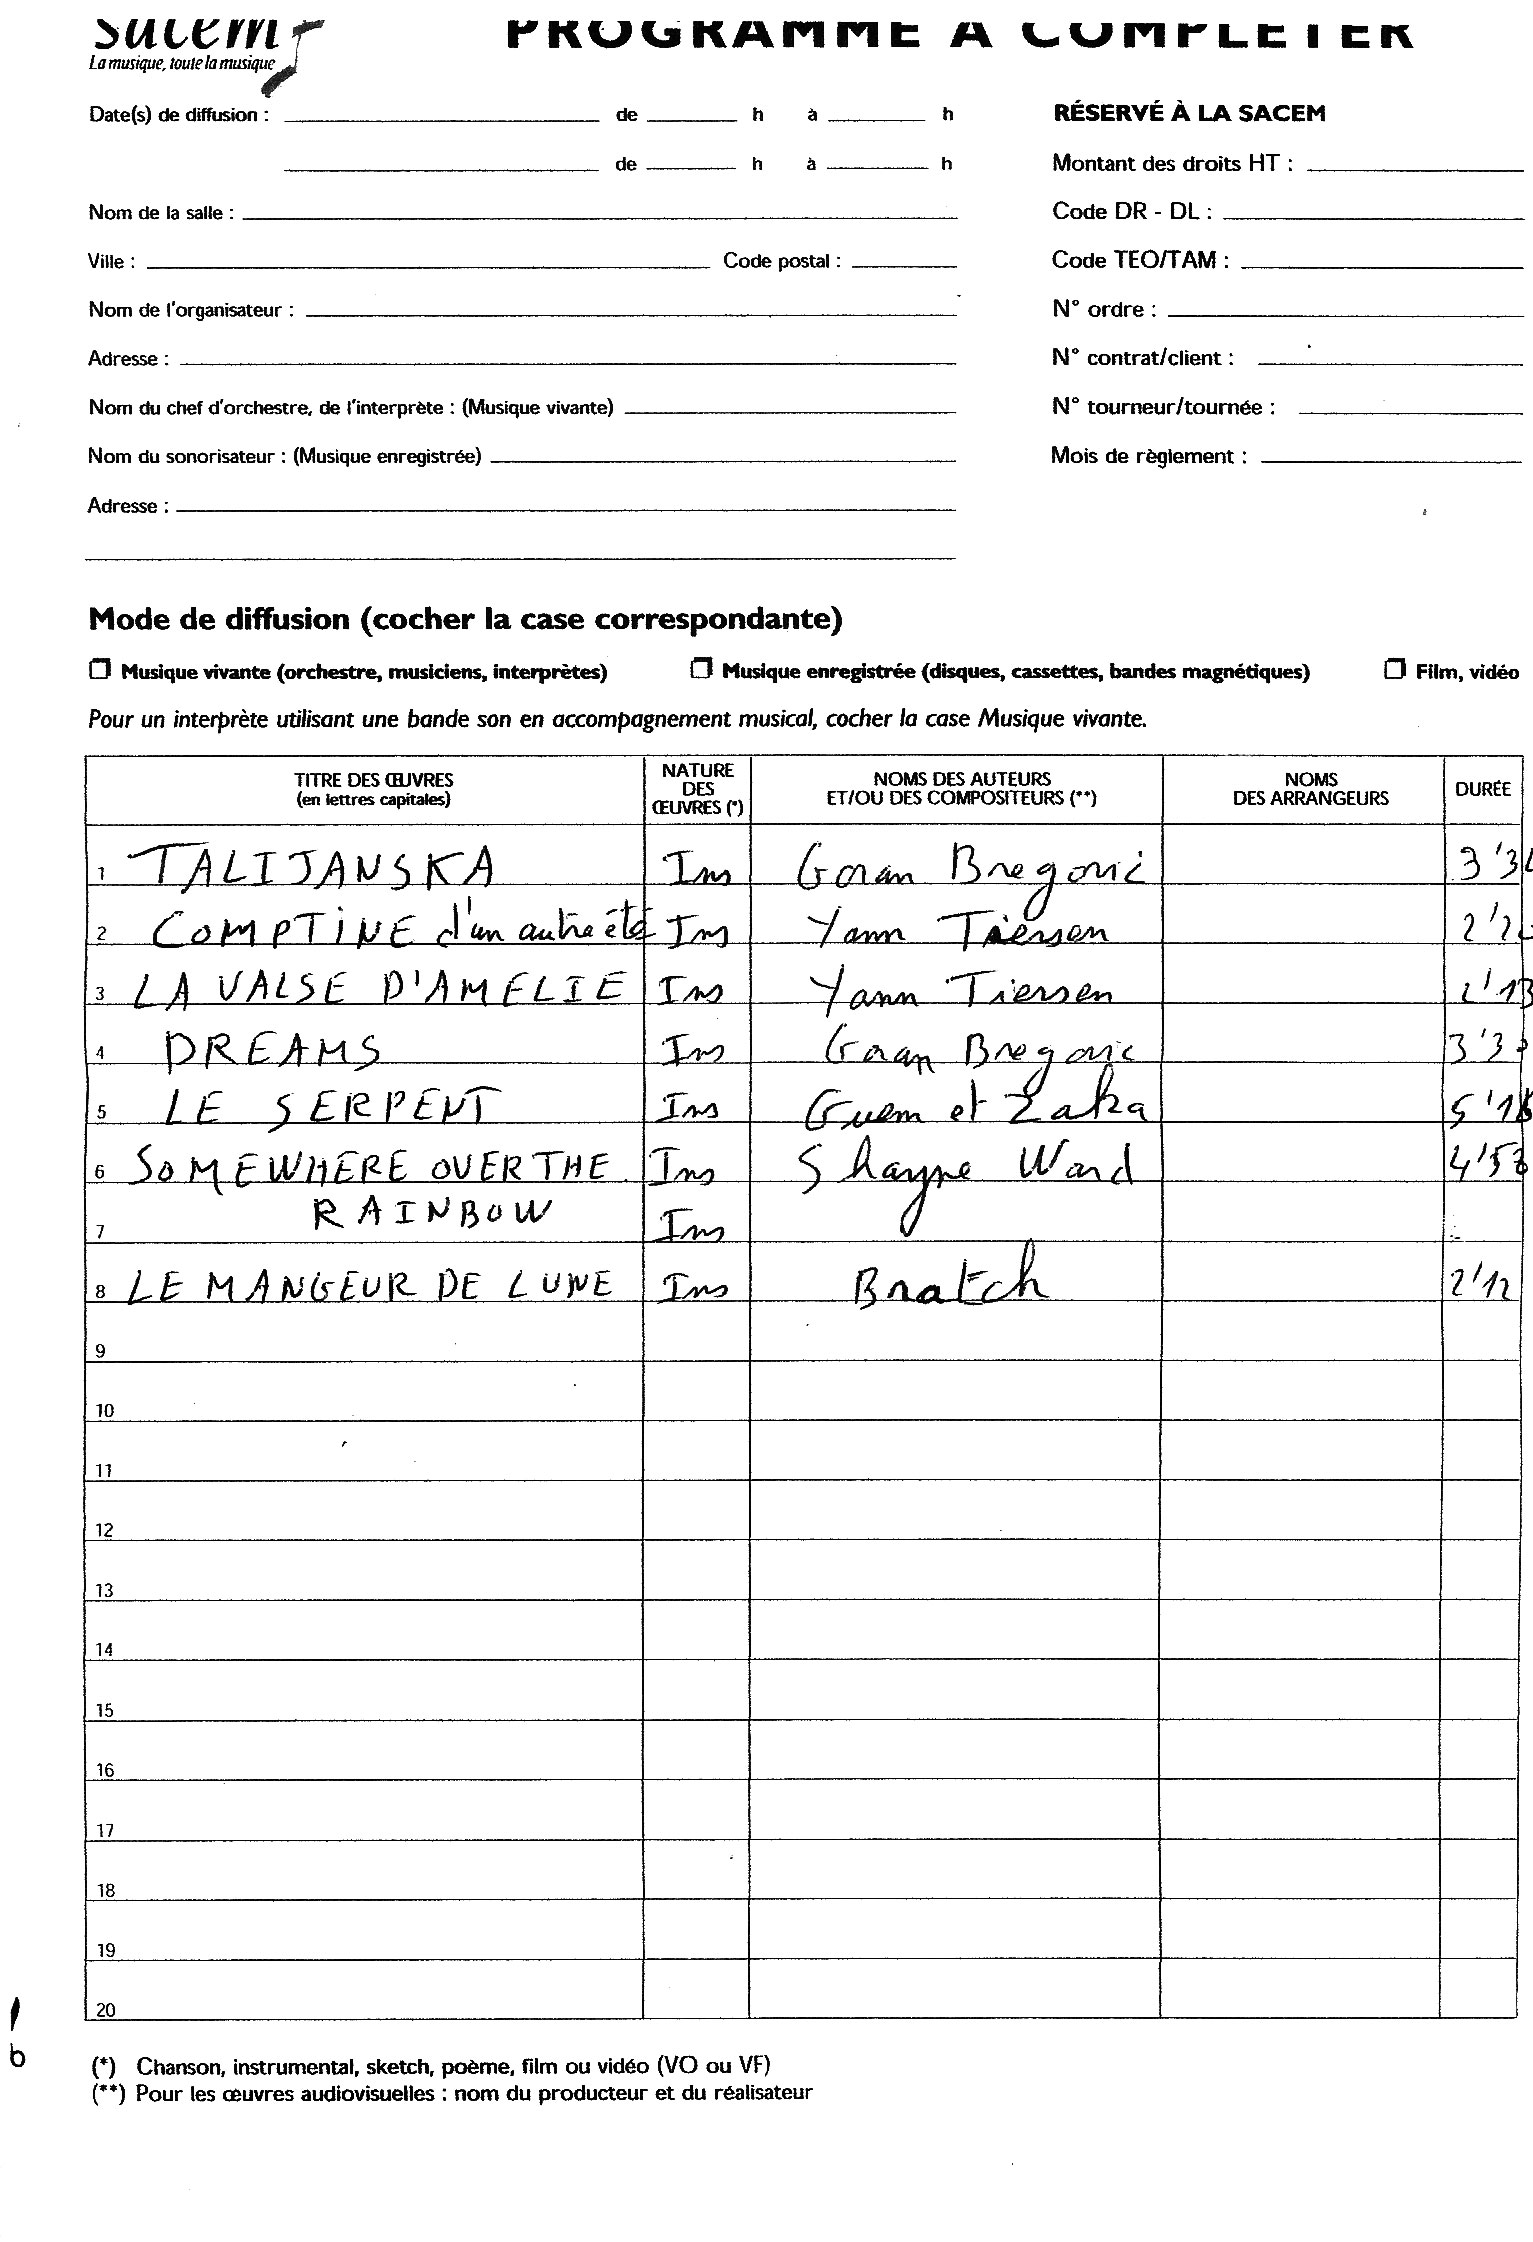 sacem
PROGRAMME A COMPLETER
La musique, toute la musique
Date(s) de diffusion : de h à h
RÉSERVÉ À LA SACEM
de h à h
Montant des droits HT :
Nom de la salle :
Code DR - DL :
Ville : Code postal :
Code TEO/TAM :
Nom de l'organisateur :
N° ordre :
Adresse :
N° contrat/client :
Nom du chef d'orchestre, de l'interprète : (Musique vivante)
N° tourneur/tournée :
Nom du sonorisateur : (Musique enregistrée)
Mois de règlement :
Adresse :
Mode de diffusion (cocher la case correspondante)
Musique vivante (orchestre, musiciens, interprètes) Musique enregistrée (disques, cassettes, bandes magnétiques) Film, vidéo
Pour un interprète utilisant une bande son en accompagnement musical, cocher la case Musique vivante.
TITRE DES ŒUVRES
(en lettres capitales)
NATURE
DES
ŒUVRES (*)
NOMS DES AUTEURS
ET/OU DES COMPOSITEURS (**)
NOMS
DES ARRANGEURS
DURÉE
1 TALIJANSKA Ins Goran Bregovic
2 COMPTINE d'un autre été Ins Yann Tiersen
3 LA VALSE D'AMELIE Ins Yann Tiersen 2'13
4 DREAMS Ins Goran Bregovic
5 LE SERPENT Ins Guem et Zaka
6 SOMEWHERE OVER THE Ins Shayne Ward 4'53
7 RAINBOW Ins
8 LE MANGEUR DE LUNE Ins Bratch 2'12
9
10
11
12
13
14
15
16
17
18
19
20
b
(*) Chanson, instrumental, sketch, poème, film ou vidéo (VO ou VF)
(**) Pour les œuvres audiovisuelles : nom du producteur et du réalisateur